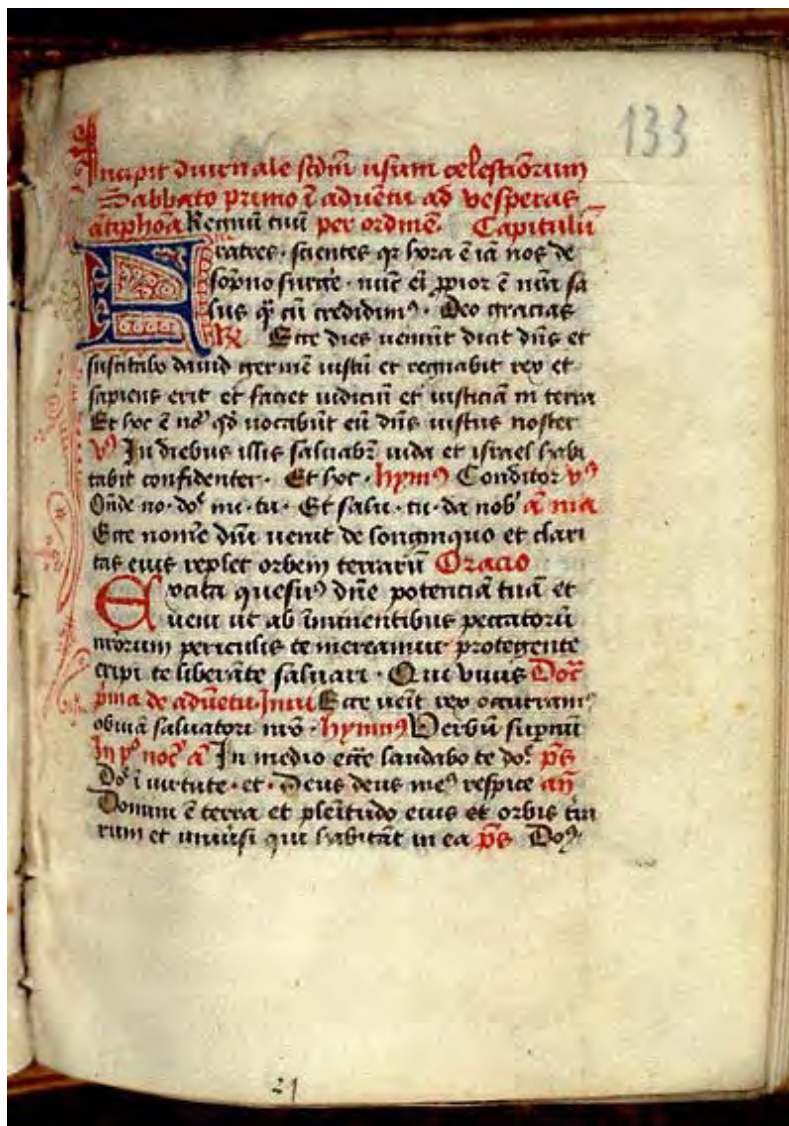 133
Incipit diurnale scdm usum celestiorum
Sabbato primo ī aduētu ad vesperas
ātiphōa Regnū tuū per ordinē. Capitulū
Fratres. scientes qr hora ē iā nos de
sopno surgē. nūc ei ꝓpior ē nrā sa
lus qꝫ cū credidimꝰ. Deo gracias
R̄ Ecce dies ueniūt dicit dn̄s et
suscitabo dauid germē iustū et regnabit rex et
sapiens erit et faciet iudiciū et iusticiā in terra
Et hoc ē nō qd uocabūt eū dn̄s iustus noster
Vꝰ In diebus illis saluabr̄ iuda et israel habi
tabit confidenter. Et hoc. hymꝰ Conditor vꝰ
Onde no. do. mi. tu. Et salu. tu. da nob ā ma
Ecce nomē dn̄i uenit de longinquo et clari
tas eius replet orbem terrarū Oracio
Excita quesuꝰ dn̄e potenciā tuā et
ueni ut ab īminentibus peccatorū
nrōrum periculis te mereamur protegente
eripi te liberāte saluari. Qui viuis Doc̄
p̄ma de aduētu. Inui Ecce ueīt rex occurramꝰ
obuiā saluatori nrō. hymnꝰ Verbū supnū
In pº nocº ā In medio ecc̄e laudabo te do. ps̄
Do ī uirtute. et. Deus deus meꝰ respice an̄
Domini ē terra et plēitudo eius et orbis trā
rum et uniūsi qui habitāt in ea ps̄ Doꝰ
21